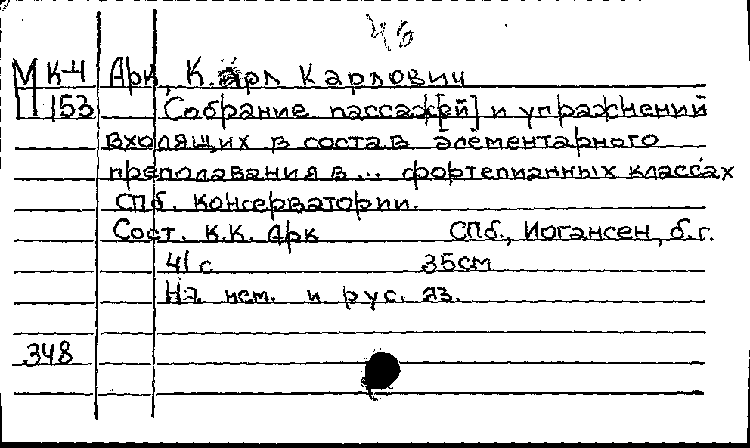 46
М К-4 Арк, Карл Карлович
П 153 Собрание пассаж[ей] и упражнений
входящих в состав элементарного
преподавания в... фортепианных классах
СПб. консерватории.
Сост. К.К. Арк СПб., Иогансен, б.г.
41 с. 35см
На нем. и рус. яз.
348